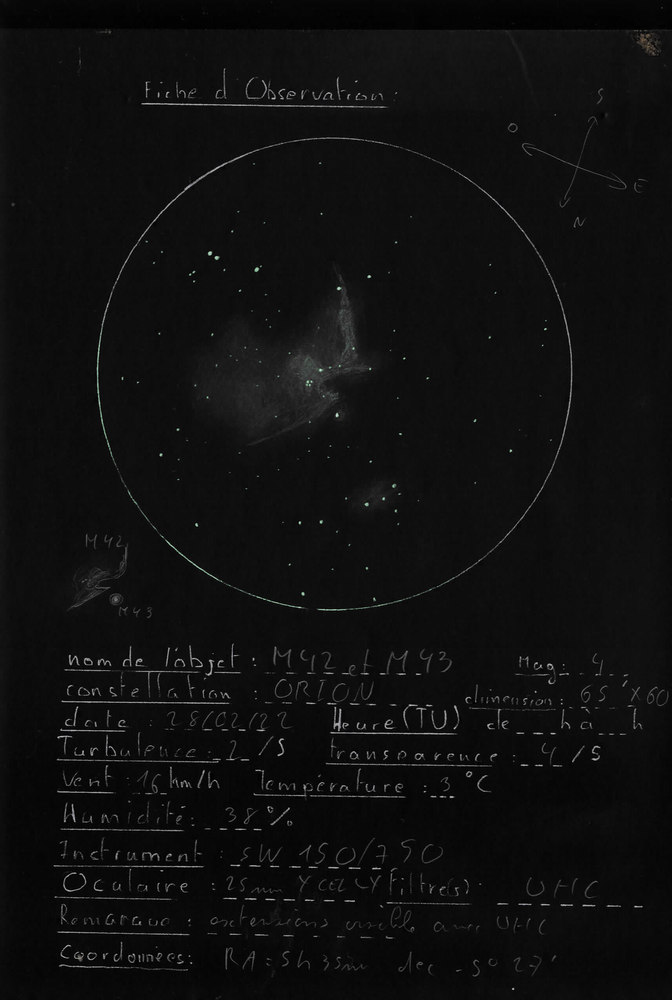 Fiche d'Observation:
S
O
E
N
M42
M43
nom de l'objet : M42 et M43 Mag: 4
constellation : ORION dimension: 65'X60
date : 28/02/22 Heure (TU) de ___h à ___h
Turbulence: 2 /5 transparence : 4 /5
Vent : 16 km/h Température : 3 °C
Humidité: 38%
Instrument : SW 150/750
Oculaire : 25mm Filtre(s): UHC
Remarque : extensions visible avec UHC
Coordonnées: RA: 5h 35m dec -5° 27'